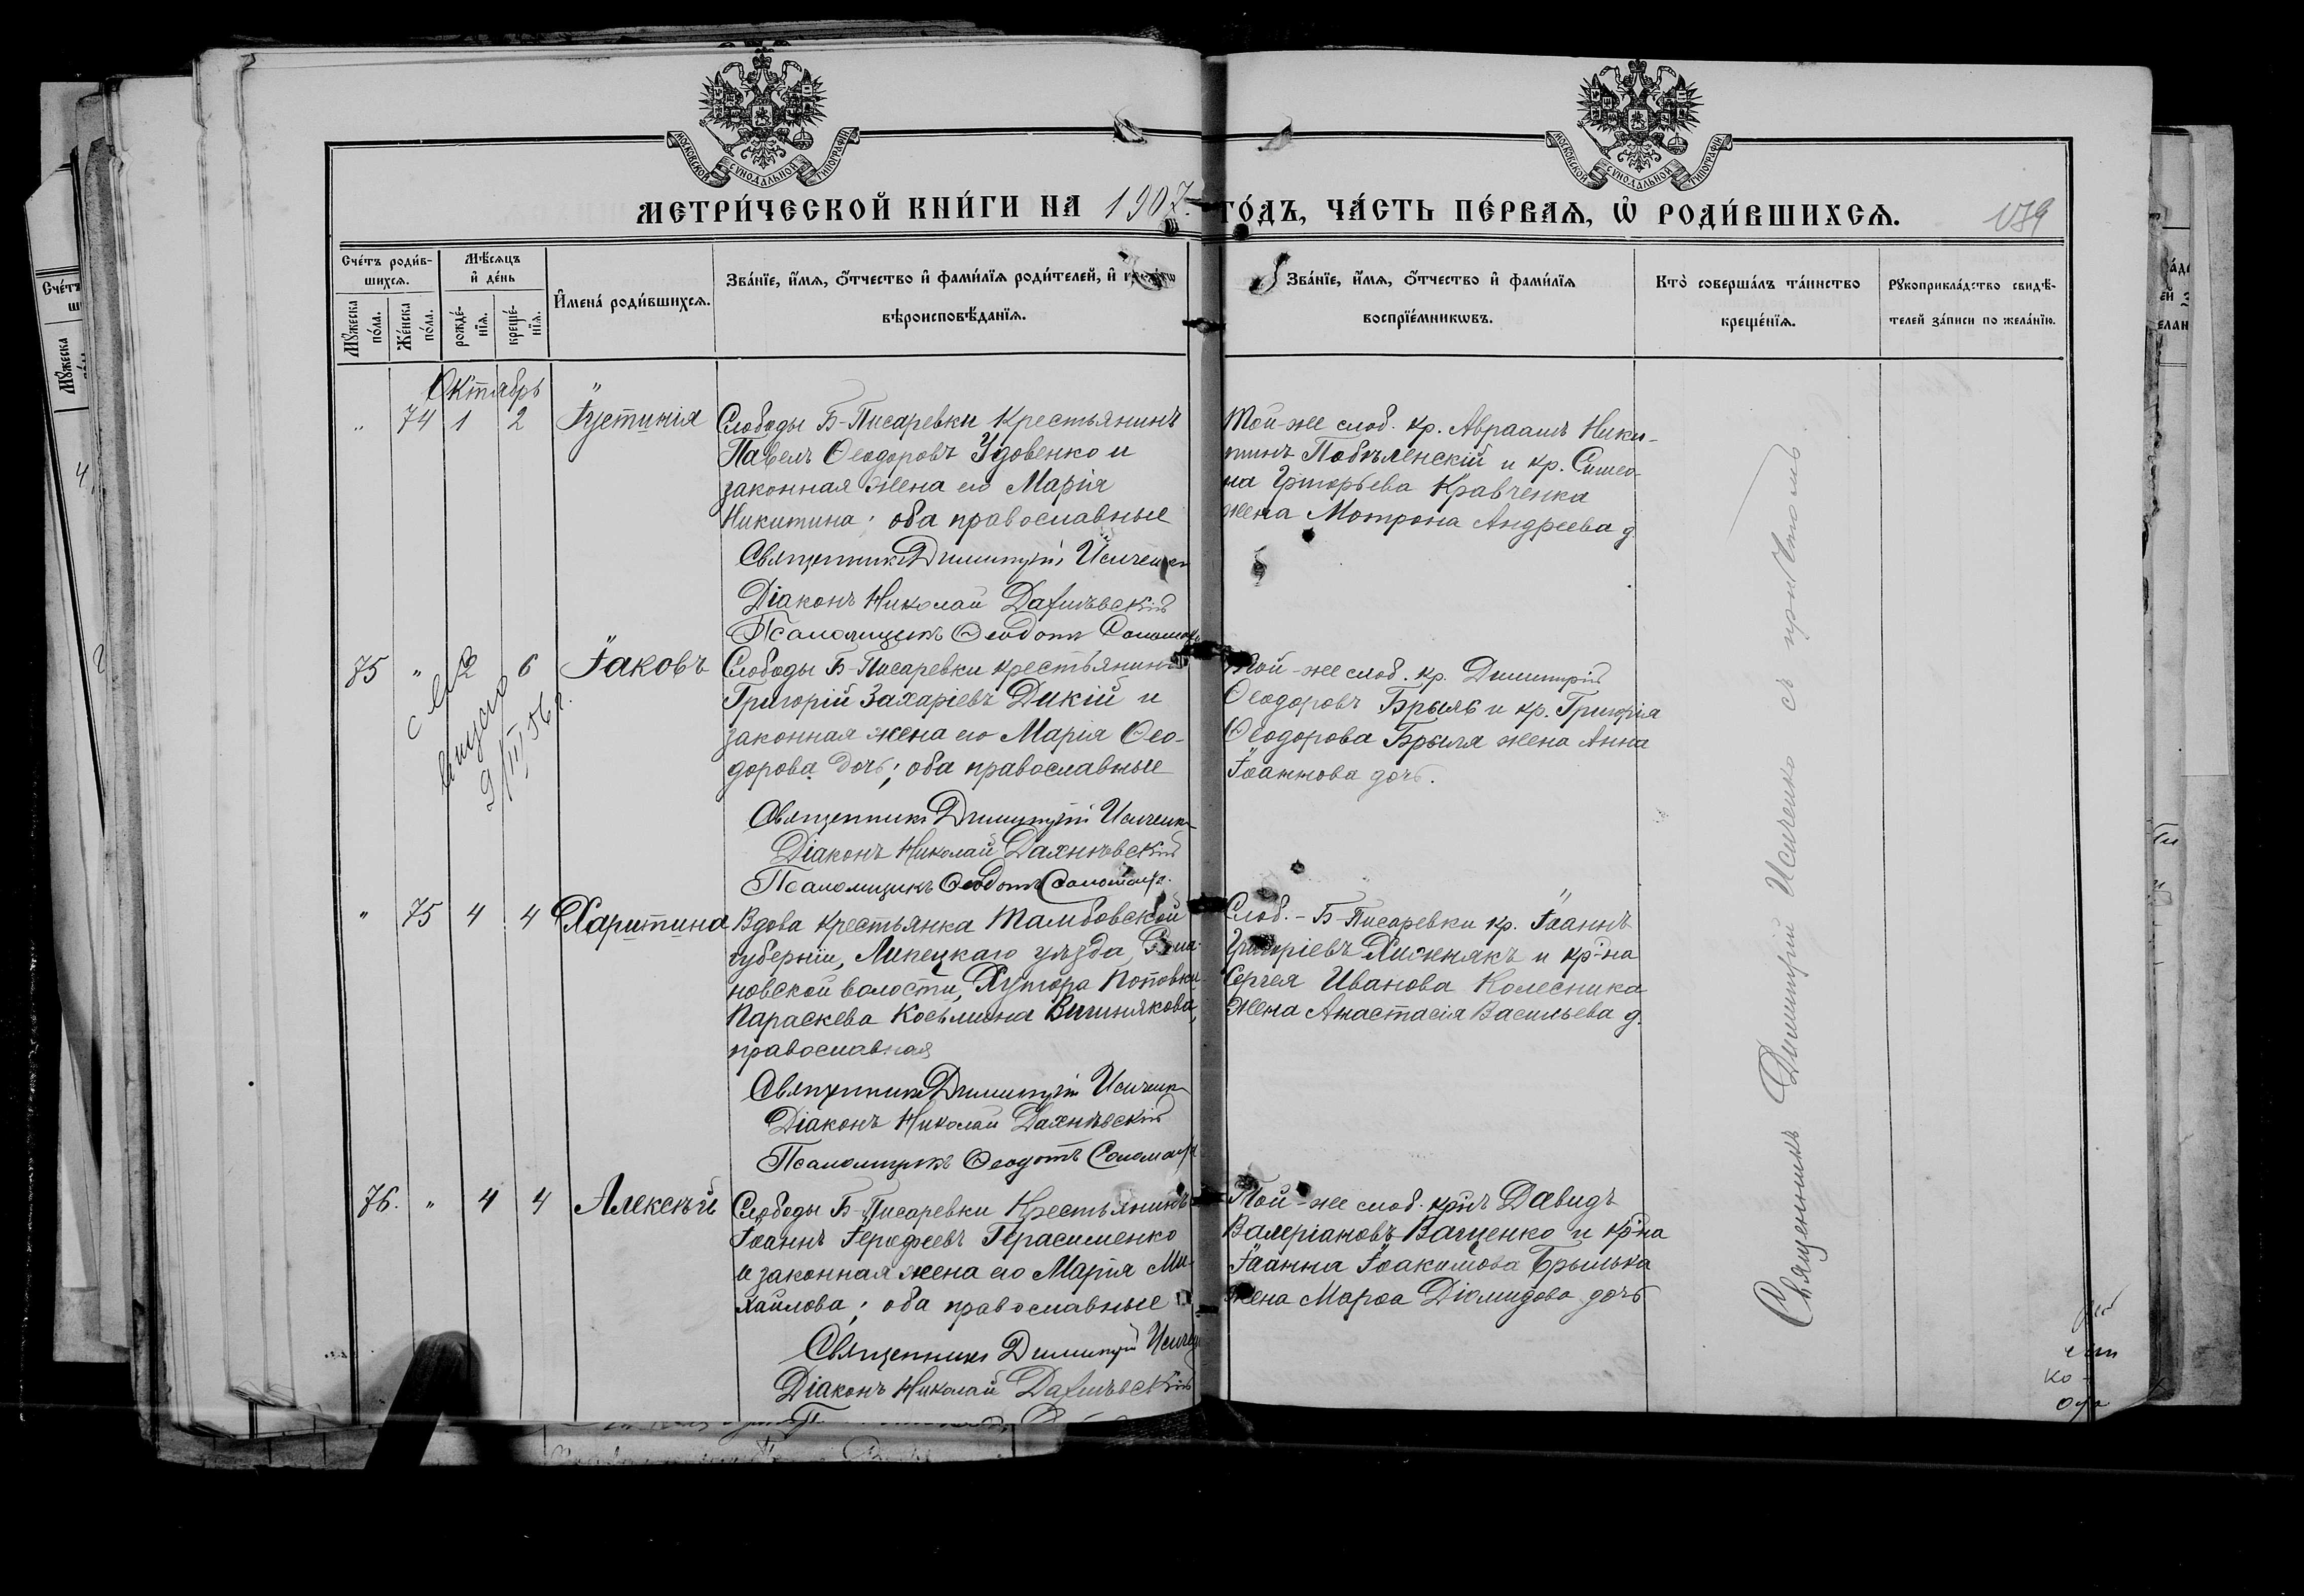 МОСКОВСКОЙ СѴНОДАЛЬНОЙ ТИПОГРАФІИ
МОСКОВСКОЙ СѴНОДАЛЬНОЙ ТИПОГРАФІИ
МЕТРИ́ЧЕСКОЙ КНИ́ГИ НА 1907 ГО́ДЪ, ЧА́СТЬ ПЕ́РВАѦ, Ѡ҆ РОДИ́ВШИХСѦ.
Сче́тъ роди́в-
шихсѧ.
Мꙋ́жеска по́ла.
Же́нска по́ла.
Мѣ́сѧцъ
и҆ де́нь
рожде́-
нїѧ.
креще́-
нїѧ.
И҆мена̀ роди́вшихсѧ.
Зва́нїе, и҆́мѧ, ѻ҆́тчество и҆ фами́лїѧ роди́телей, и҆
вѣроисповѣ́данїѧ.
Зва́нїе, и҆́мѧ, ѻ҆́тчество и҆ фами́лїѧ
воспрїе́мникѡвъ.
Кто̀ соверша́лъ та́инство
креще́нїѧ.
Рꙋкоприкла́дство свидѣ́-
телей за́писи по жела́нїю.
Октябрь
" 74 1 2 Іустинія
Слободы Б-Писаревки Крестьянинъ
Павелъ Ѳеодоровъ Удовенко и
законная жена его Марія
Никитина; оба православные
Священникъ Димитрій Исиченко
Діаконъ Николай
Псаломщикъ Ѳеодотъ
Той-же слоб. кр. Авраамъ Ники-
тинъ Побѣленскій и кр. Симео-
на Григорьева Кравченка
жена Мотрона Андреева д.
75 " 2 6 Іаковъ
9/III 56 г.
Слободы Б-Писаревки крестьянинъ
Григорій Захаріевъ Дикій и
законная жена его Марія Ѳео-
дорова дочь; оба православные
Священникъ Димитрій Исиченко
Діаконъ Николай Дахнѣвскій
Псаломщикъ Ѳеодотъ
Той-же слоб. кр. Димитрій
Ѳеодоровъ Брыль и кр. Григорія
Ѳеодорова Брыля жена Анна
Іоаннова дочь.
" 75 4 4 Харитина
Вдова крестьянка Тамбовской
губерніи, Липецкаго уѣзда,
новской волости, Хутора Поповки
Параскева Косьмина Вишнякова,
православная
Священникъ Димитрій Исиченко
Діаконъ Николай Дахнѣвскій
Псаломщикъ Ѳеодотъ
Слоб.-Б-Писаревки кр. Іоаннъ
Григоріевъ Хижнякъ и кр-на
Сергея Иванова Колесника
жена Анастасія Васильева д.
76. " 4 4 Алексѣй
Слободы Б-Писаревки Крестьянинъ
Іоаннъ Іерофеевъ Герасименко
и законная жена его Марія Ми-
хайлова; оба православные
Священникъ Димитрій
Діаконъ Николай
Той-же слоб. кр-нъ Давидъ
Валеріановъ Ващенко и кр-на
Іоанна Іоакимова Брылька
жена Марѳа Діомидова дочь
Священникъ Димитрій Исиченко съ причтомъ